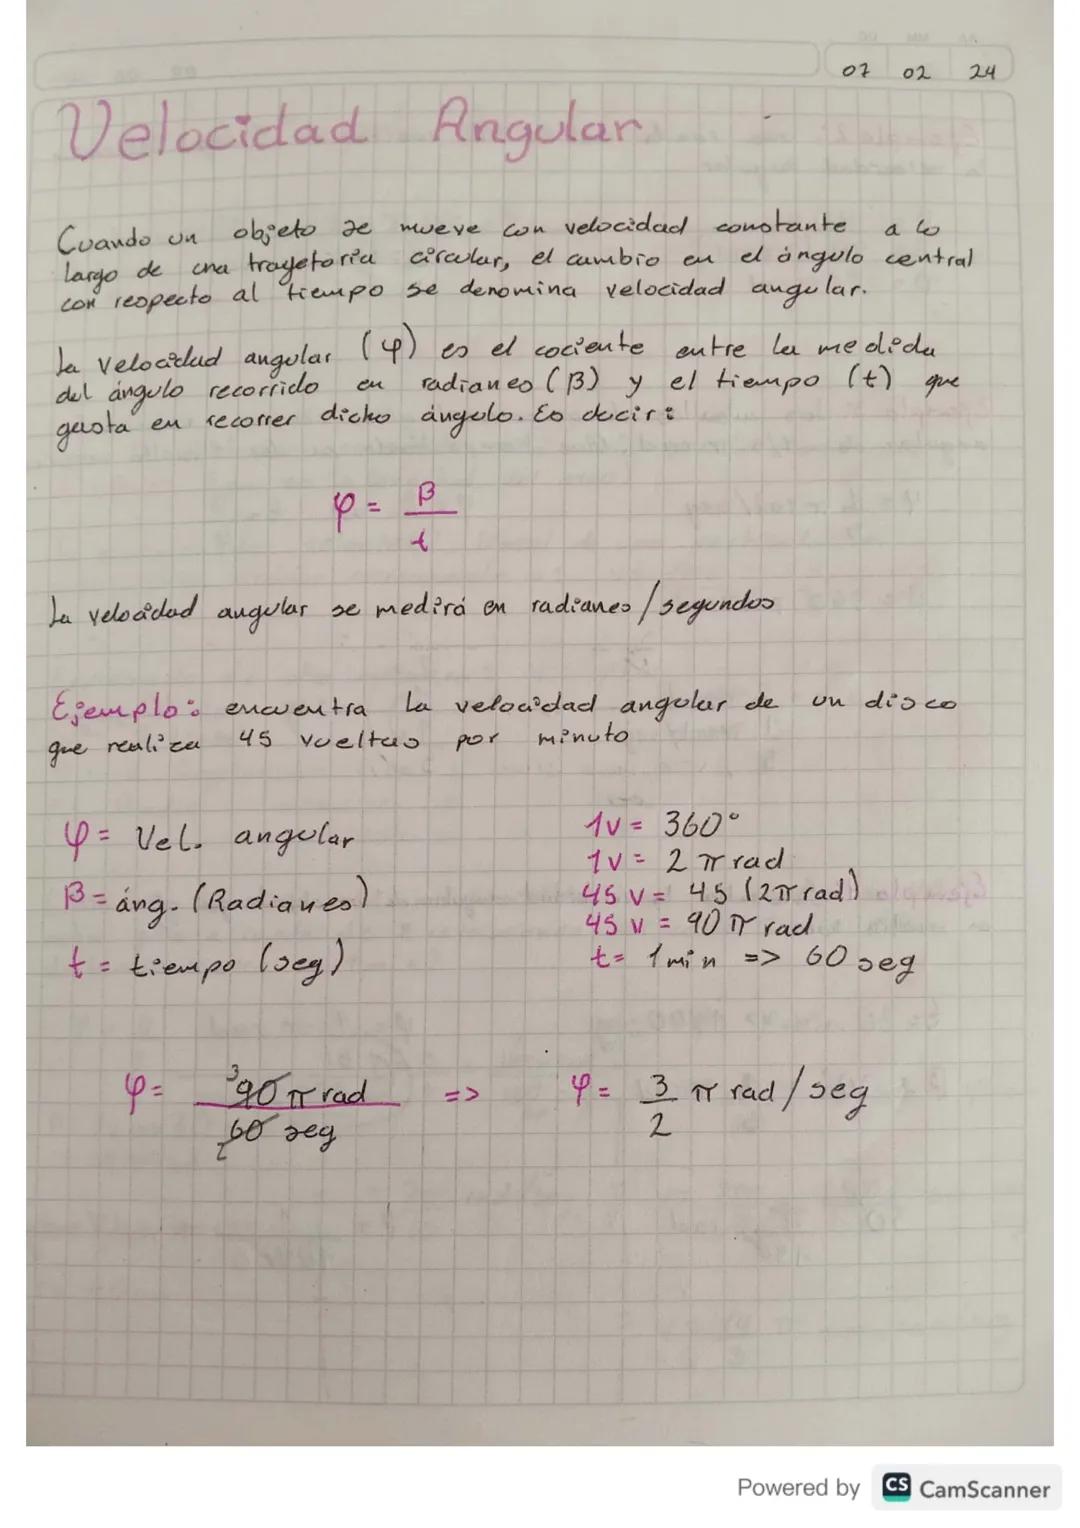 07 02 24
Velocidad Angular
Cuando un objeto se mueve con velocidad constante a lo
largo de una trayetoria circular, el cambio en el ángulo central
con respecto al tiempo se denomina velocidad angular.
La velocidad angular (φ) es el cociente entre la medida
del ángulo recorrido en radianes (β) y el tiempo (t) que
gasta en recorrer dicho ángulo. Es decir:
φ = β
t
La velocidad angular se medirá en radianes/segundos
Ejemplo: encuentra la velocidad angular de un disco
que realiza 45 vueltas por minuto
φ = Vel. angular
β = áng. (Radianes)
t = tiempo (seg)
1v = 360°
1v = 2π rad
45 v = 45 (2π rad)
45 v = 90 π rad
t = 1 min => 60 seg
3
φ = 90 π rad => φ = 3 π rad/seg
60 seg 2
2
Powered by CS CamScanner